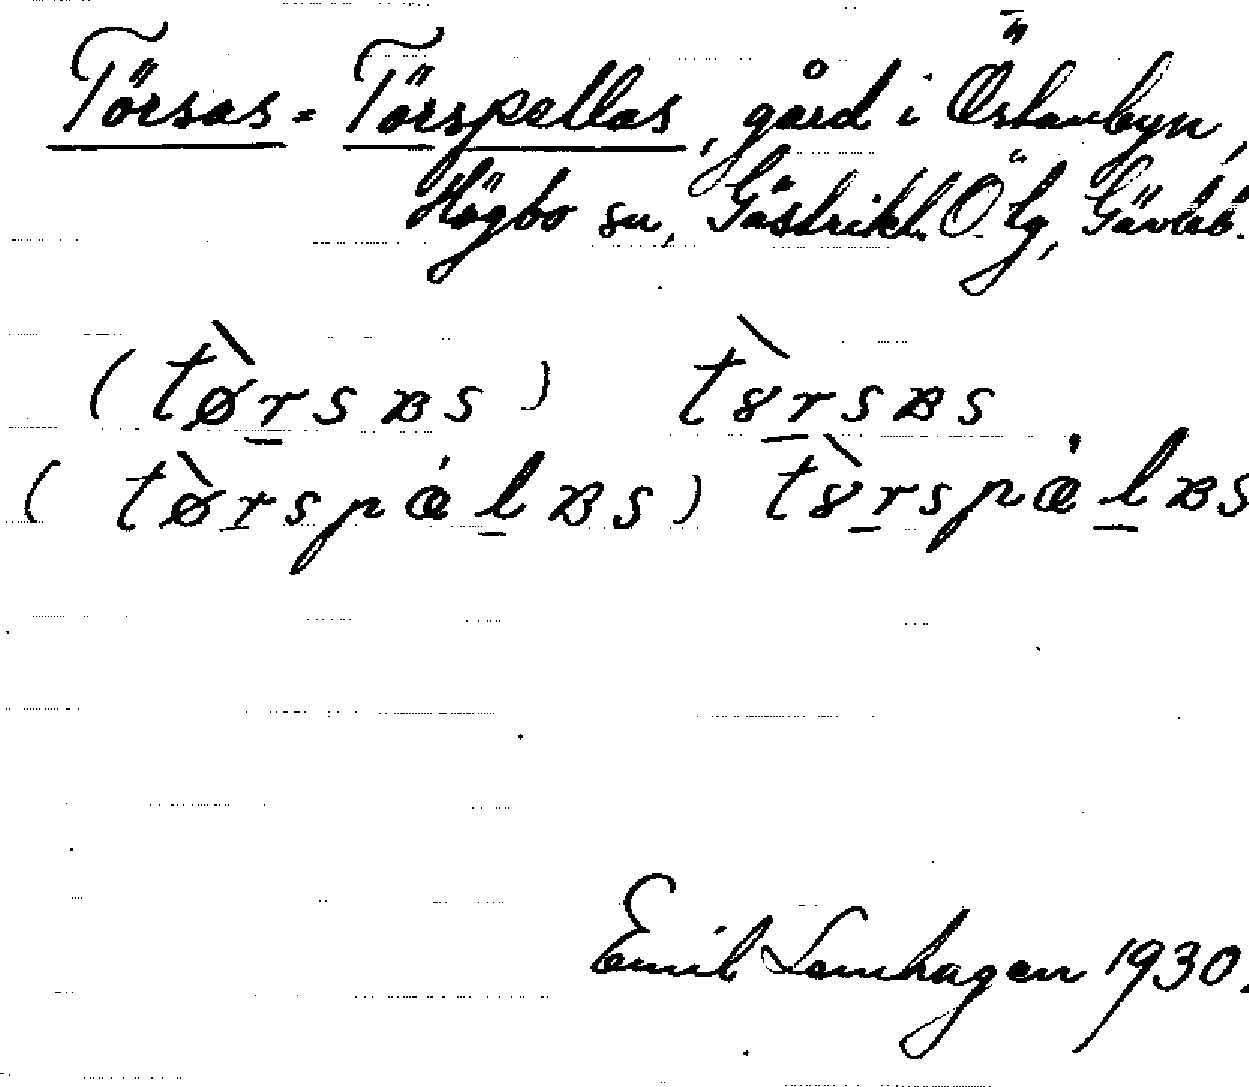 Törsas = Törspellas, gård i Östanbyn,
Högbo sn, Gästrikl. Ö. tg, Gävleb.
(tø̀rsʙs) tȣ̀rsʙs
(tø̀rspálʙs) tȣ̀rspálʙs
Emil Lamhagen 1930.